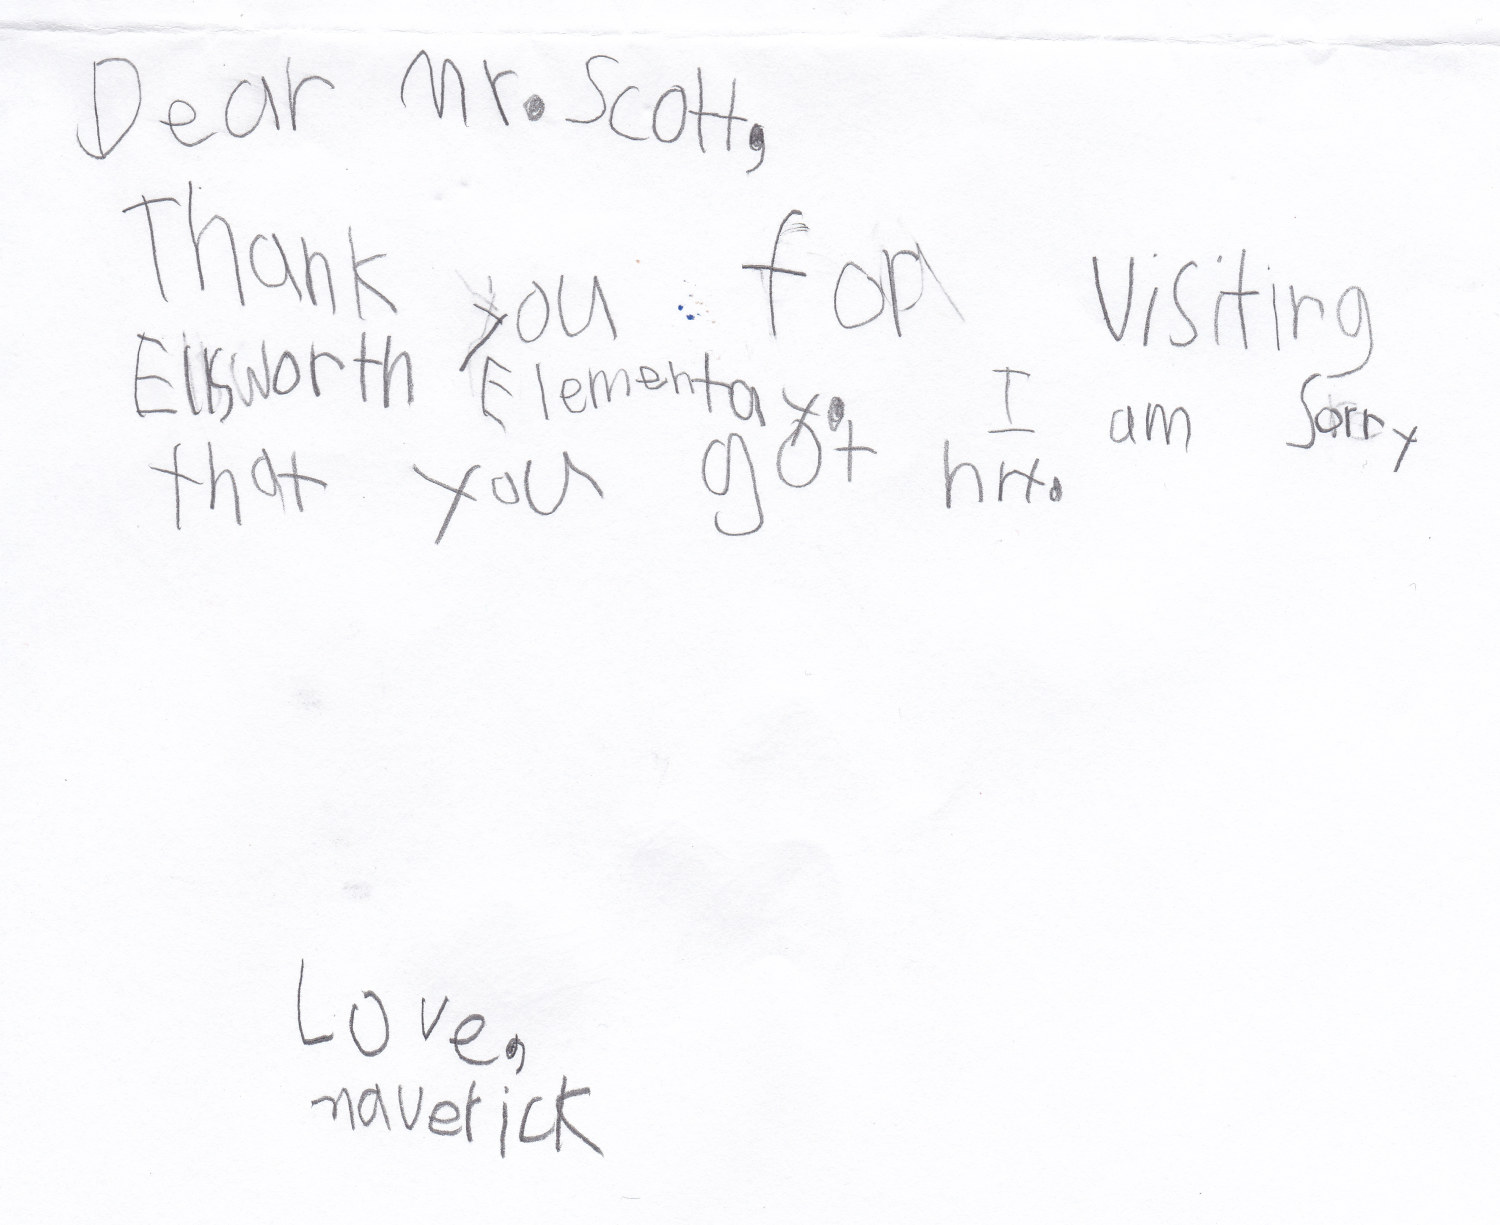 Dear Mr. Scott,
Thank you for visiting
Ellsworth Elementay. I am sorry
that you got hrt.
Love,
maverick